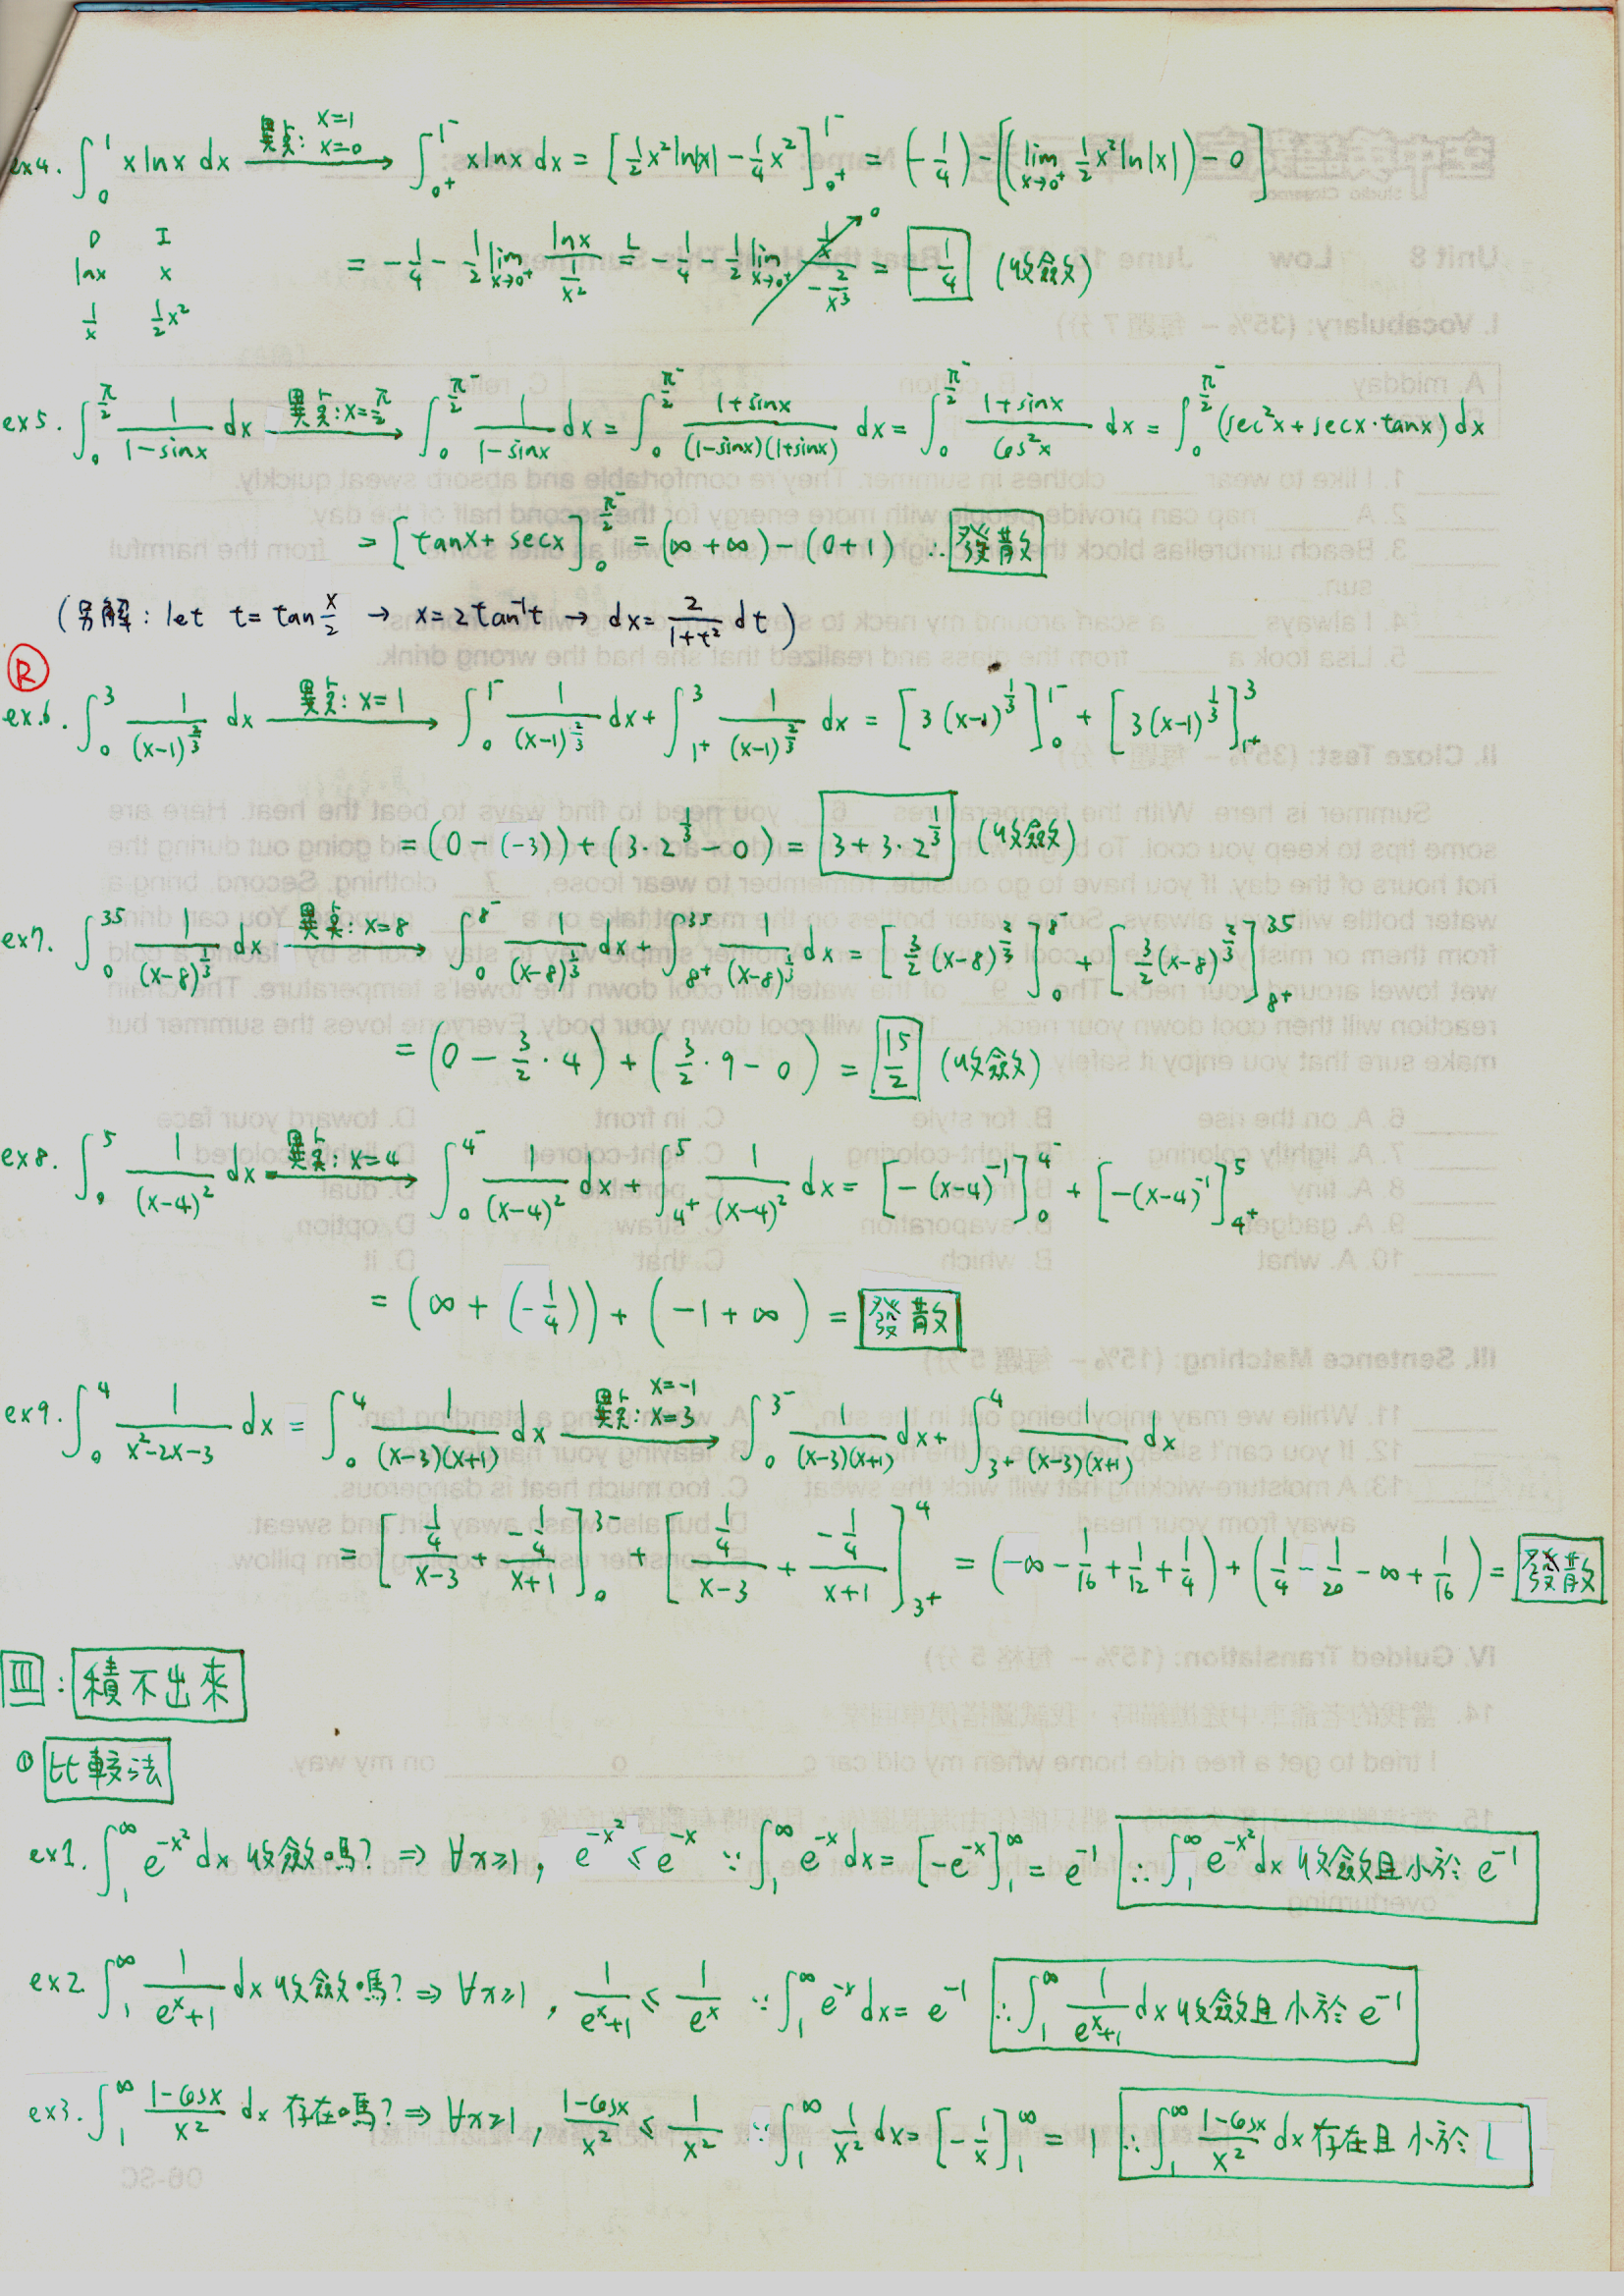 ex4. ∫₀¹ x ln x dx —(異點: x=1, x=0)→ ∫_{0⁺}^{1⁻} x ln x dx = [½x² ln|x| − ¼x²]_{0⁺}^{1⁻} = (−¼) − [(lim_{x→0⁺} ½x² ln|x|) − 0]
D I
lnx x
1/x ½x²
= −¼ − ½ lim_{x→0⁺} lnx/(1/x²) =ᴸ −¼ − ½ lim_{x→0⁺} (1/x)/(−2/x³) ↗0 = −¼ (收斂)
ex5. ∫₀^{π/2} 1/(1−sinx) dx —(異點: x=π/2)→ ∫₀^{π/2⁻} 1/(1−sinx) dx = ∫₀^{π/2⁻} (1+sinx)/((1−sinx)(1+sinx)) dx = ∫₀^{π/2⁻} (1+sinx)/cos²x dx = ∫₀^{π/2⁻} (sec²x + secx·tanx) dx
= [tanx + secx]₀^{π/2⁻} = (∞+∞) − (0+1) ∴ 發散
(另解: let t = tan x/2 → x = 2tan⁻¹t → dx = 2/(1+t²) dt)
R
ex.6. ∫₀³ 1/(x−1)^{2/3} dx —(異點: x=1)→ ∫₀^{1⁻} 1/(x−1)^{2/3} dx + ∫_{1⁺}³ 1/(x−1)^{2/3} dx = [3(x−1)^{1/3}]₀^{1⁻} + [3(x−1)^{1/3}]_{1⁺}³
= (0−(−3)) + (3·2^{1/3} − 0) = 3+3·2^{1/3} (收斂)
ex7. ∫₀³⁵ 1/(x−8)^{1/3} dx —(異點: x=8)→ ∫₀^{8⁻} 1/(x−8)^{1/3} dx + ∫_{8⁺}³⁵ 1/(x−8)^{1/3} dx = [3/2 (x−8)^{2/3}]₀^{8⁻} + [3/2 (x−8)^{2/3}]_{8⁺}³⁵
= (0 − 3/2·4) + (3/2·9 − 0) = 15/2 (收斂)
ex8. ∫₀⁵ 1/(x−4)² dx —(異點: x=4)→ ∫₀^{4⁻} 1/(x−4)² dx + ∫_{4⁺}⁵ 1/(x−4)² dx = [−(x−4)⁻¹]₀^{4⁻} + [−(x−4)⁻¹]_{4⁺}⁵
= (∞ + (−¼)) + (−1+∞) = 發散
ex9. ∫₀⁴ 1/(x²−2x−3) dx = ∫₀⁴ 1/((x−3)(x+1)) dx —(異點: x=−1, x=3)→ ∫₀^{3⁻} 1/((x−3)(x+1)) dx + ∫_{3⁺}⁴ 1/((x−3)(x+1)) dx
= [¼/(x−3) + −¼/(x+1)]₀^{3⁻} + [¼/(x−3) + −¼/(x+1)]_{3⁺}⁴ = (−∞ − 1/16 + 1/12 + 1/4) + (1/4 − 1/20 − ∞ + 1/16) = 發散
III: 積不出來
① 比較法
ex1. ∫₁^∞ e^{−x²} dx 收斂嗎? ⇒ ∀x≥1, e^{−x²} ≤ e^{−x} ∵ ∫₁^∞ e^{−x} dx = [−e^{−x}]₁^∞ = e⁻¹ ∴ ∫₁^∞ e^{−x²} dx 收斂且小於 e⁻¹
ex2. ∫₁^∞ 1/(eˣ+1) dx 收斂嗎? ⇒ ∀x≥1, 1/(eˣ+1) ≤ 1/eˣ ∵ ∫₁^∞ e^{−x} dx = e⁻¹ ∴ ∫₁^∞ 1/(eˣ+1) dx 收斂且小於 e⁻¹
ex3. ∫₁^∞ (1−cosx)/x² dx 存在嗎? ⇒ ∀x≥1, (1−cosx)/x² ≤ 1/x² ∵ ∫₁^∞ 1/x² dx = [−1/x]₁^∞ = 1 ∴ ∫₁^∞ (1−cosx)/x² dx 存在且小於 L